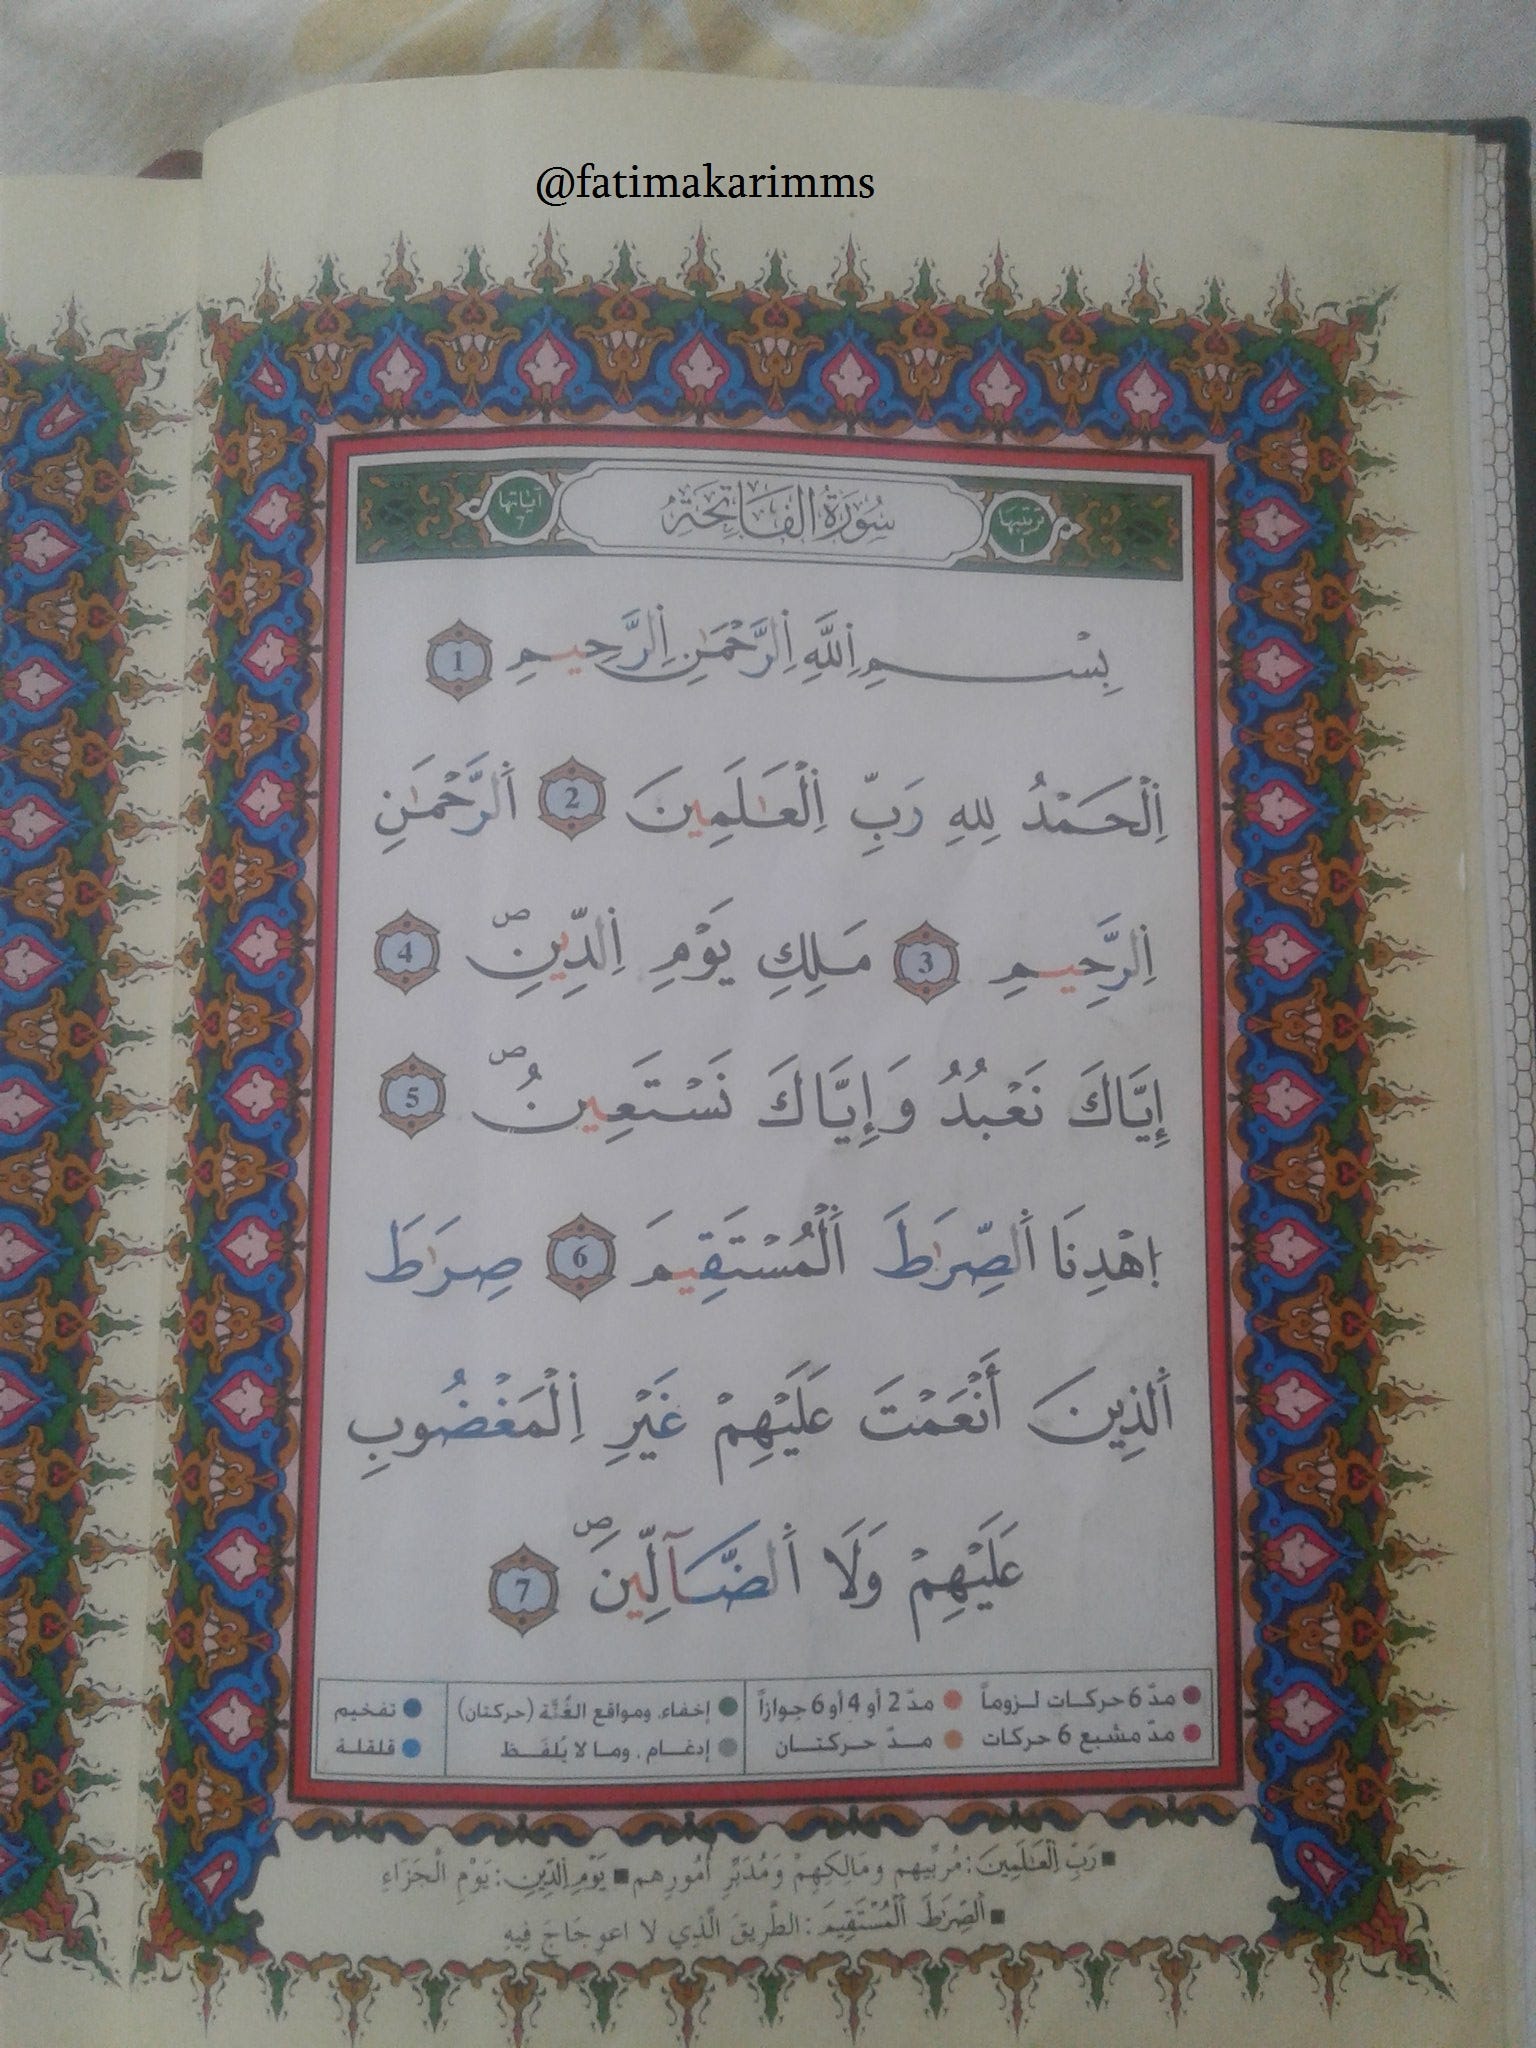 @fatimakarimms
ترتيبها 1 سُورَةُ الفَاتِحَةِ آياتها 7
بِسْمِ اِ۬للَّهِ اِ۬لرَّحْمَٰنِ اِ۬لرَّحِيمِ 1
اِ۬لْحَمْدُ لِلهِ رَبِّ اِ۬لْعَٰلَمِينَ 2 اَ۬لرَّحْمَٰنِ
اِ۬لرَّحِيمِ 3 مَلِكِ يَوْمِ اِ۬لدِّينِۖ 4
إِيَّاكَ نَعْبُدُ وَإِيَّاكَ نَسْتَعِينُۖ 5
اِهْدِنَا اَ۬لصِّرَٰطَ اَ۬لْمُسْتَقِيمَ 6 صِرَٰطَ
اَ۬لذِينَ أَنْعَمْتَ عَلَيْهِمْ غَيْرِ اِ۬لْمَغْضُوبِ
عَلَيْهِمْ وَلَا اَ۬لضَّآلِّينَۖ 7
مدّ 6 حركات لـزوماً مدّ 2 أو 4 أو 6 جوازاً إخفاء، ومواقع الغُنَّة (حركتان) تفخيم
مدّ مشبع 6 حركات مـدّ حـركتـــان إدغـام ، وما لا يُلفَـظ قلقلة
■ رَبِّ اِ۬لْعَٰلَمِينَ : مُرَبِّيهِم ومَالِكِهِمْ وَمُدَبِّرِ أُمُورِهِم ■ يَوْمِ اِ۬لدِّينِ : يَوْمِ الْجَزَاءِ
■ اَ۬لصِّرَٰطَ اَ۬لْمُسْتَقِيمَ : الطَّرِيقَ الَّذِي لا اعوِجَاجَ فِيهِ